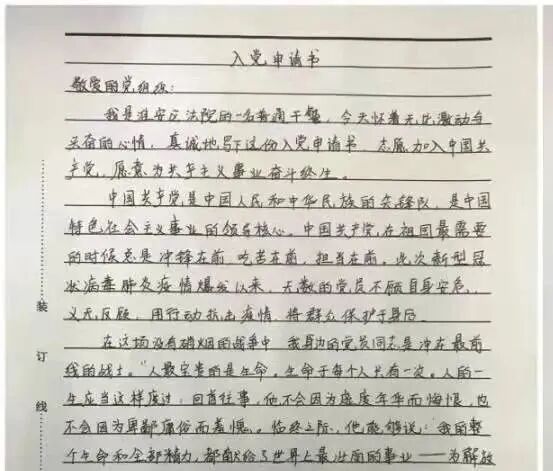 入党申请书
敬爱的党组织：
我是淮安区法院的一名普通干警，今天怀着无比激动与
兴奋的心情，真诚地写下这份入党申请书，志愿加入中国共
产党，愿意为共产主义事业奋斗终生。
中国共产党是中国人民和中华民族的先锋队，是中国
特色社会主义事业的领导核心。中国共产党在祖国最需要
的时候总是冲锋在前，吃苦在前，担当在前。此次新型冠
状病毒肺炎疫情爆发以来，无数的党员不顾自身安危，
义无反顾，用行动抗击疫情，将群众保护于身后。
在这场没有硝烟的战争中，我身边的党员同志是冲在最前
线的战士。“人最宝贵的是生命，生命于每个人只有一次。人的一
生应当这样度过：回首往事，他不会因为虚度年华而悔恨，也
不会因为卑鄙庸俗而羞愧。临终之际，他能够说：我的整
个生命和全部精力，都献给了世界上最壮丽的事业——为解放
装
订
线